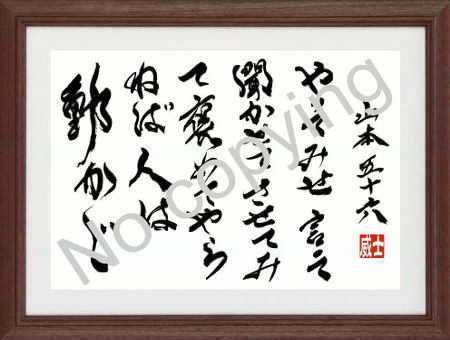 山本五十六
やってみせ 言って
聞かせて させてみ
て 褒めてやら
ねば人は
動かじ
威士
No copying